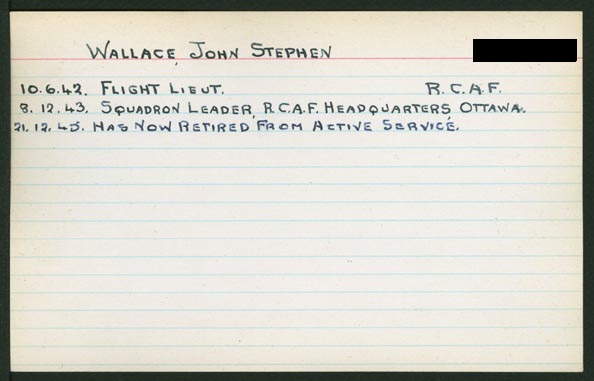 WALLACE, JOHN STEPHEN
10.6.42. FLIGHT LIEUT. R.C.A.F.
8.12.43. SQUADRON LEADER, R.C.A.F. HEADQUARTERS, OTTAWA.
21.12.45. HAS NOW RETIRED FROM ACTIVE SERVICE.